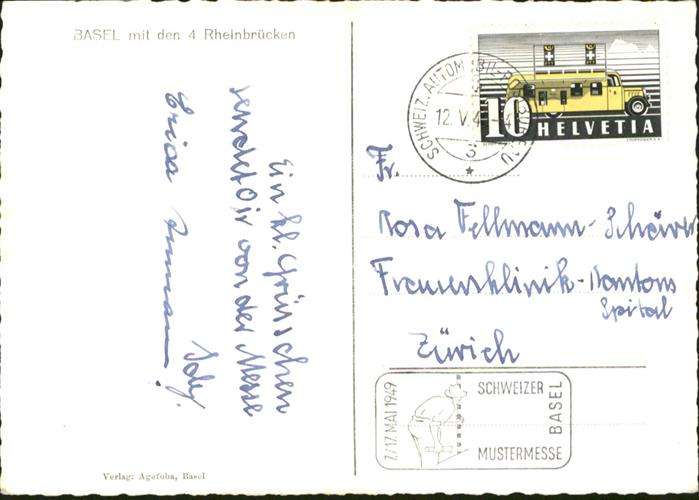 BASEL mit den 4 Rheinbrücken
Ein kl. Grüsschen
sendet Dir von der Messe
Erica
Verlag: Agefoba, Basel
SCHWEIZ. AUTOMOBIL-POSTBUREAU
12. V. 4
3
10 HELVETIA
Fr.
Rosa Fellmann-
Frauenklinik-Kantons
Spital
Zürich
7./17. MAI 1949
SCHWEIZER
MUSTERMESSE
BASEL